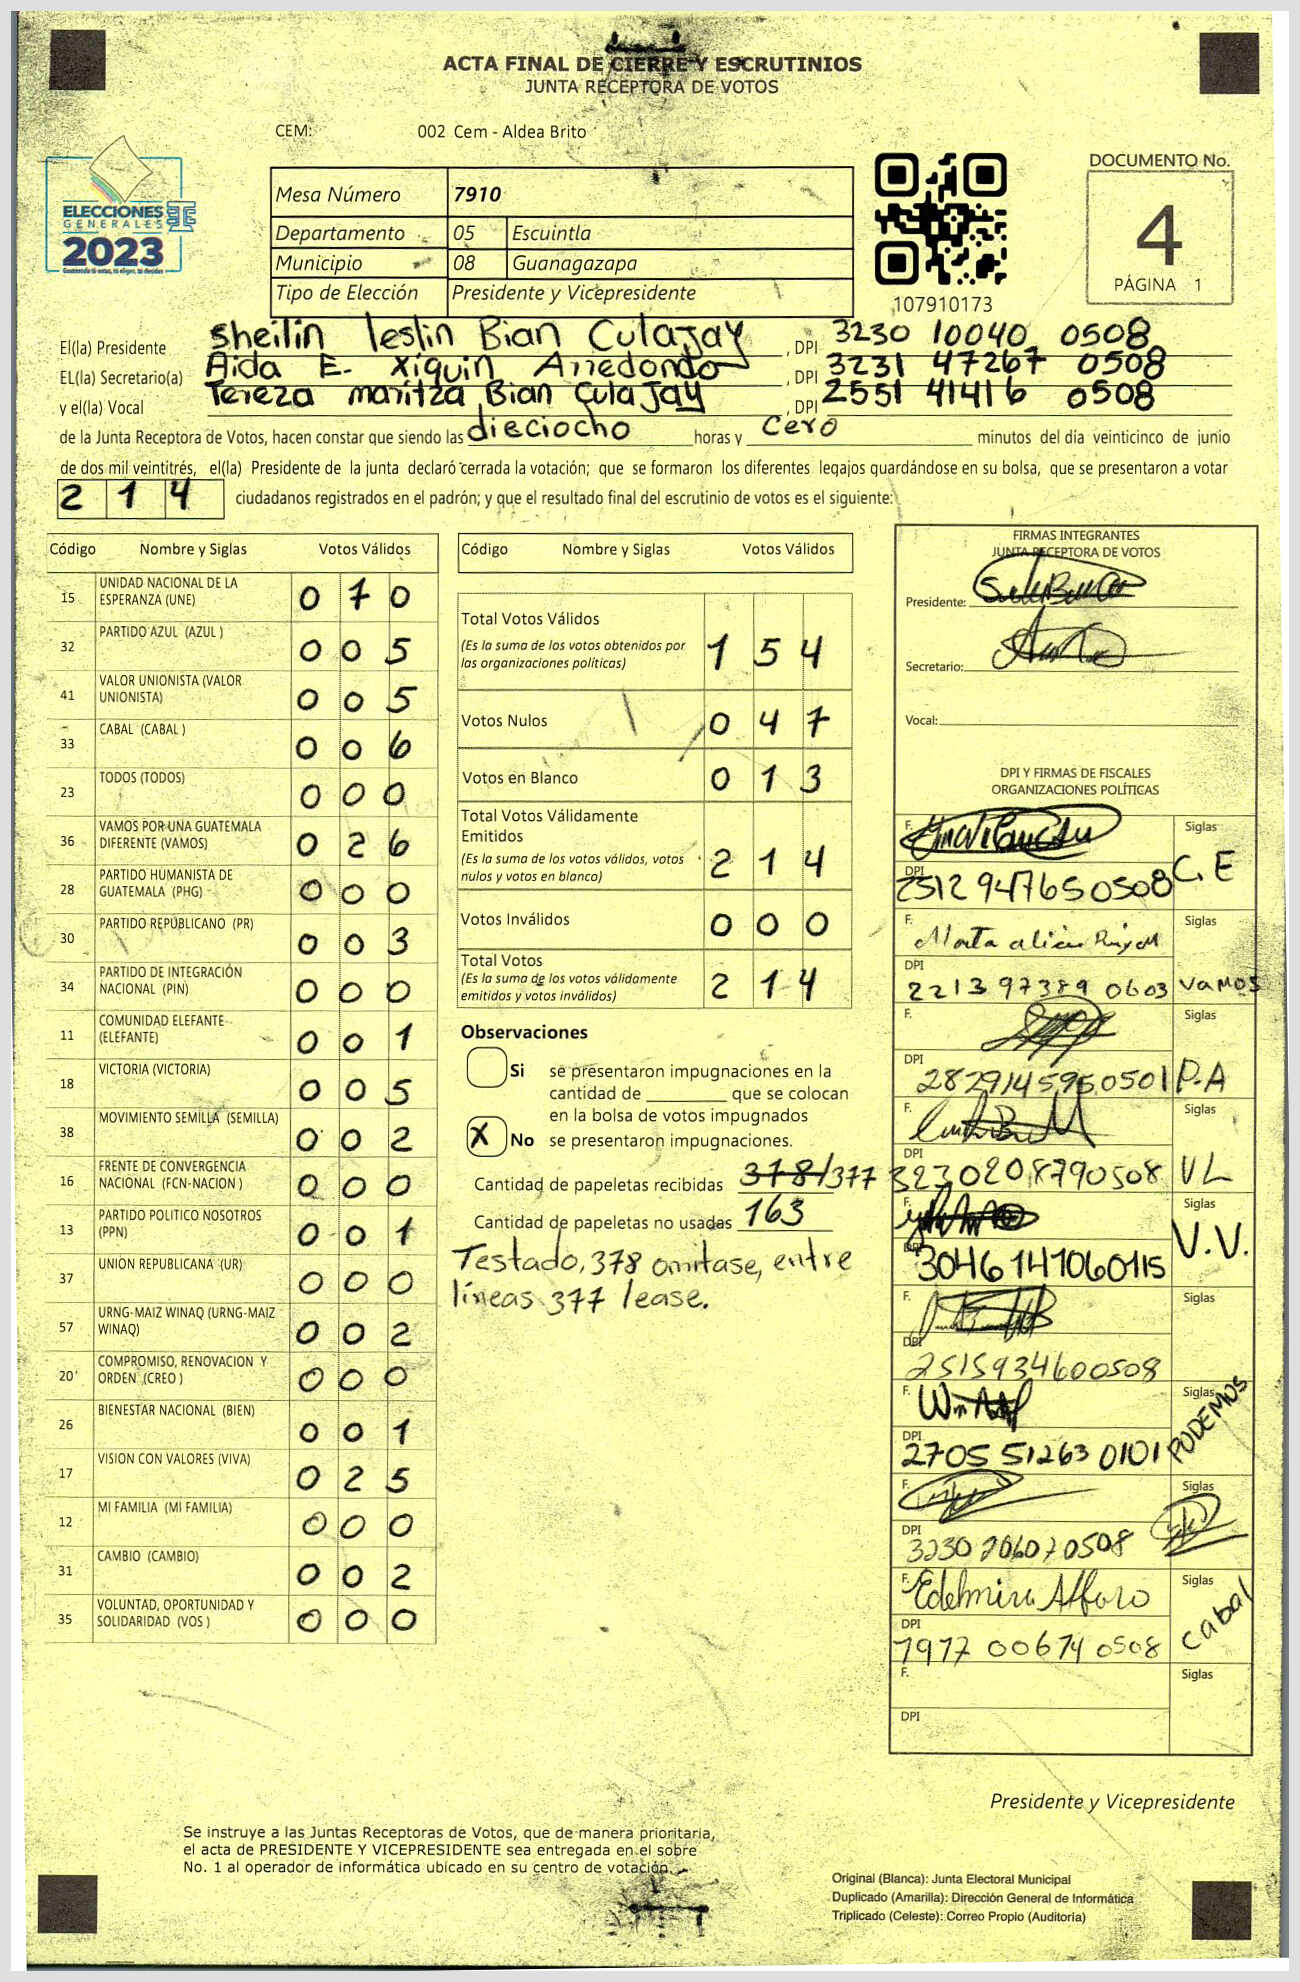 ACTA FINAL DE CIERRE Y ESCRUTINIOS
JUNTA RECEPTORA DE VOTOS
CEM: 002 Cem - Aldea Brito
ELECCIONES
GENERALES
2023
Mesa Número 7910
Departamento 05 Escuintla
Municipio 08 Guanagazapa
Tipo de Elección Presidente y Vicepresidente
107910173
DOCUMENTO No.
4
PÁGINA 1
El(la) Presidente Sheilin leslin Bian Culajay, DPI 3230 10040 0508
EL(la) Secretario(a) Aida E. Xiquin Arredondo, DPI 3231 47267 0508
y el(la) Vocal Tereza maritza Bian Culajay, DPI 2551 41416 0508
de la Junta Receptora de Votos, hacen constar que siendo las dieciocho horas y cero minutos del día veinticinco de junio
de dos mil veintitrés, el(la) Presidente de la junta declaró cerrada la votación; que se formaron los diferentes legajos guardándose en su bolsa, que se presentaron a votar
214 ciudadanos registrados en el padrón; y que el resultado final del escrutinio de votos es el siguiente:
Código Nombre y Siglas Votos Válidos
15 UNIDAD NACIONAL DE LA ESPERANZA (UNE) 0 7 0
32 PARTIDO AZUL (AZUL ) 0 0 5
41 VALOR UNIONISTA (VALOR UNIONISTA) 0 0 5
33 CABAL (CABAL ) 0 0 6
23 TODOS (TODOS) 0 0 0
36 VAMOS POR UNA GUATEMALA DIFERENTE (VAMOS) 0 2 6
28 PARTIDO HUMANISTA DE GUATEMALA (PHG) 0 0 0
30 PARTIDO REPUBLICANO (PR) 0 0 3
34 PARTIDO DE INTEGRACIÓN NACIONAL (PIN) 0 0 0
11 COMUNIDAD ELEFANTE (ELEFANTE) 0 0 1
18 VICTORIA (VICTORIA) 0 0 5
38 MOVIMIENTO SEMILLA (SEMILLA) 0 0 2
16 FRENTE DE CONVERGENCIA NACIONAL (FCN-NACION ) 0 0 0
13 PARTIDO POLITICO NOSOTROS (PPN) 0 0 1
37 UNION REPUBLICANA (UR) 0 0 0
57 URNG-MAIZ WINAQ (URNG-MAIZ WINAQ) 0 0 2
20 COMPROMISO, RENOVACION Y ORDEN (CREO ) 0 0 0
26 BIENESTAR NACIONAL (BIEN) 0 0 1
17 VISION CON VALORES (VIVA) 0 2 5
12 MI FAMILIA (MI FAMILIA) 0 0 0
31 CAMBIO (CAMBIO) 0 0 2
35 VOLUNTAD, OPORTUNIDAD Y SOLIDARIDAD (VOS ) 0 0 0
Código Nombre y Siglas Votos Válidos
Total Votos Válidos 1 5 4
(Es la suma de los votos obtenidos por
las organizaciones políticas)
Votos Nulos 0 4 7
Votos en Blanco 0 1 3
Total Votos Válidamente
Emitidos 2 1 4
(Es la suma de los votos válidos, votos
nulos y votos en blanco)
Votos Inválidos 0 0 0
Total Votos 2 1 4
(Es la suma de los votos válidamente
emitidos y votos inválidos)
Observaciones
Si se presentaron impugnaciones en la
cantidad de ________ que se colocan
en la bolsa de votos impugnados
X No se presentaron impugnaciones.
Cantidad de papeletas recibidas 378/377
Cantidad de papeletas no usadas 163
Testado, 378 omitase, entre
líneas 377 lease.
FIRMAS INTEGRANTES
JUNTA RECEPTORA DE VOTOS
Presidente:
Secretario:
Vocal:
DPI Y FIRMAS DE FISCALES
ORGANIZACIONES POLÍTICAS
F. Siglas C.E
DPI 2512 94765 0508
F. Siglas vamos
DPI 2213 97389 0603
F. Siglas P.A
DPI 2829145950501
F. Siglas VL
DPI 3230208790508
F. Siglas V.V.
DPI 3046141060115
F. Siglas
DPI 2515934600508
F. Siglas PODEMOS
DPI 2705 51263 0101
F. Siglas
DPI 3230 206070508
F. Edelmira Alfaro Siglas cabal
DPI 1977 00674 0508
F. Siglas
DPI
Presidente y Vicepresidente
Se instruye a las Juntas Receptoras de Votos, que de manera prioritaria,
el acta de PRESIDENTE Y VICEPRESIDENTE sea entregada en el sobre
No. 1 al operador de informática ubicado en su centro de votación.
Original (Blanca): Junta Electoral Municipal
Duplicado (Amarilla): Dirección General de Informática
Triplicado (Celeste): Correo Propio (Auditoria)